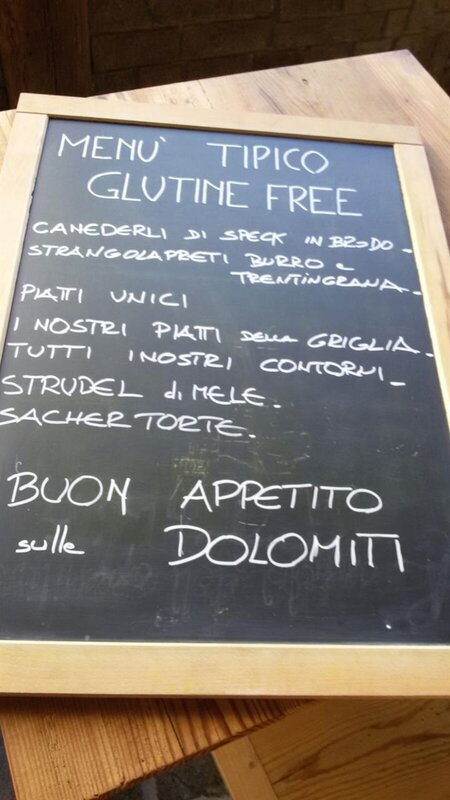 MENU' TIPICO
GLUTINE FREE
CANEDERLI DI SPECK IN BRODO -
STRANGOLAPRETI BURRO e
TRENTINGRANA -
PIATTI UNICI
I NOSTRI PIATTI DELLA GRIGLIA -
TUTTI I NOSTRI CONTORNI -
STRUDEL di MELE -
SACHER TORTE -
BUON APPETITO
sulle DOLOMITI